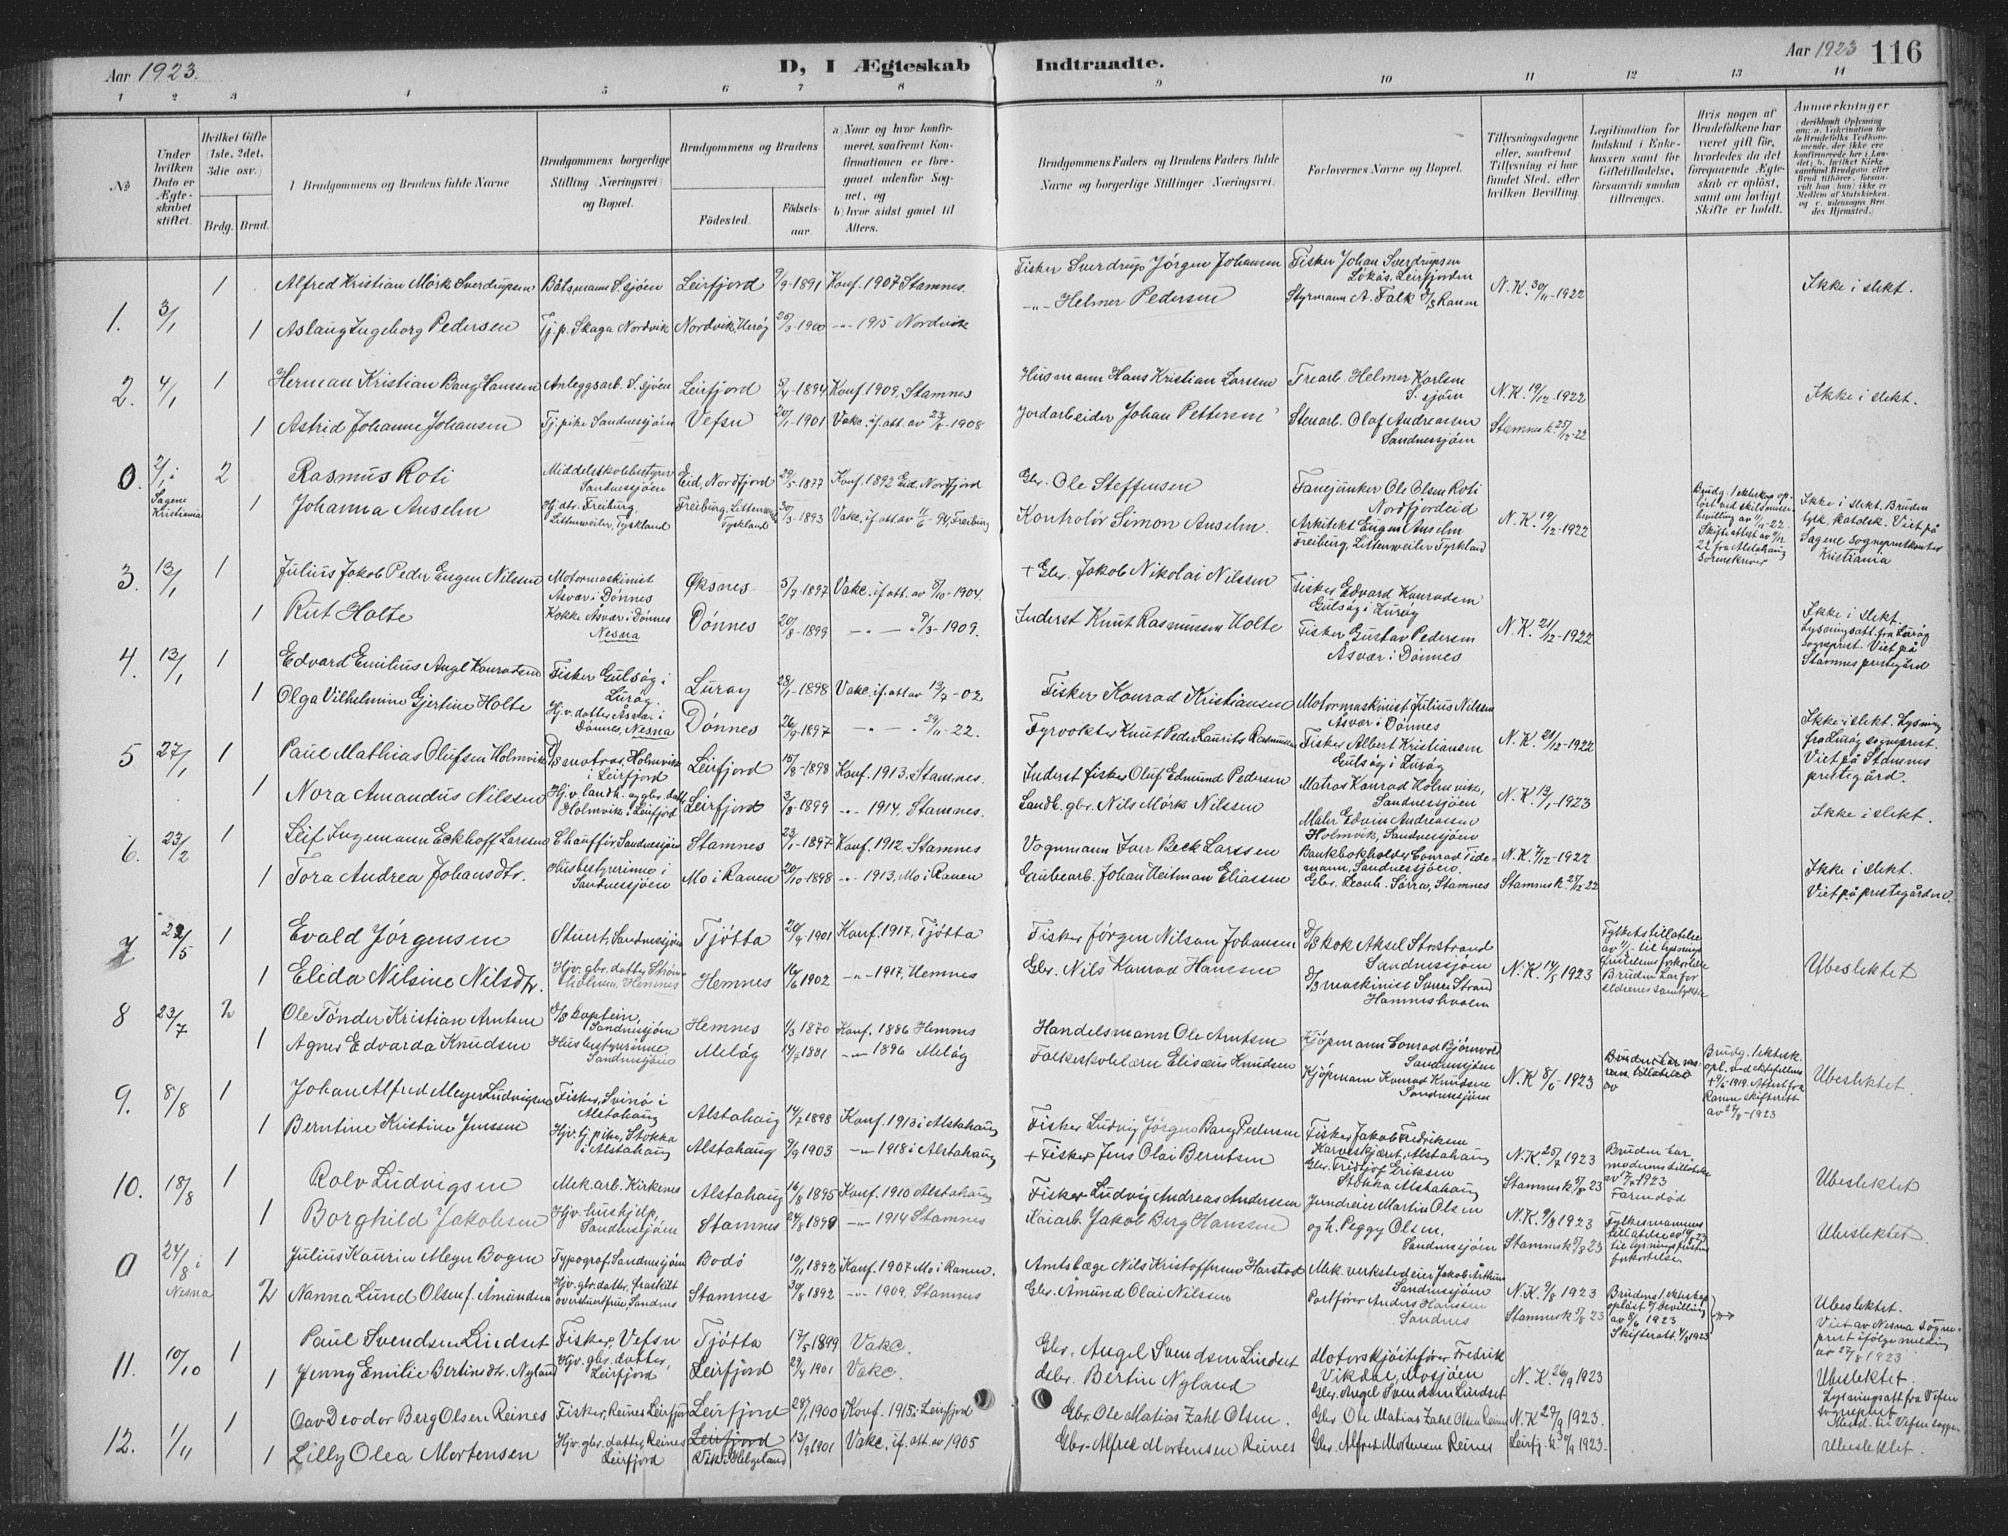 Aar 1923.
D, I Ægteskab Indtraadte.
Aar 1923 116
1 2 3 4 5 6 7 8 9 10 11 12 13 14
№
Under hvilken Dato er Ægteskabet stiftet.
Hvilket Gifte (1ste, 2det, 3die osv.)
Brdg. Brud.
Brudgommens og Brudens fulde Navne
Brudgommens borgerlige Stilling (Næringsvei) og Bopæl.
Brudgommens og Brudens
Födested.
Födselsaar.
a) Naar og hvor konfirmeret, saafremt Konfirmationen er foregaaet udenfor Sognet, og
b) hvor sidst gaaet til Alters.
Brudgommens Faders og Brudens Faders fulde Navne og borgerlige Stillinger (Næringsvei).
Forlovernes Navne og Bopæl.
Tillysningsdagene eller, saafremt Tillysning ei har fundet Sted, efter hvilken Bevilling.
Legitimation for Indskud i Enkekassen samt for Giftetilladelse, forsaavidt saadan tiltrænges.
Hvis nogen af Brudefolkene har været gift för, hvorledes da det foregaaende Ægteskab er oplöst, samt om lovligt Skifte er holdt.
Anmærkninger
1. 3/1 1 Alfred Kristian Mörk Sverdrupsen Båtsmann S.sjøen Leirfjord 9/9-1891 Konf. 1907 Stamnes. Fisker Sverdrup Jörgen Johansen Fisker Johan Sverdrupsen Løkås, Leirfjorden N.K. 30/11-1922 Ikke i slekt.
1 Aslaug Ingeborg Pedersen Tj.p. Skaga Nordvik Nordvik, Herøy 20/3-1900 -"- 1915 Nordvik -"- Helmer Pedersen Styrmann A. Falk D/S Ranen
2. 4/1 1 Herman Kristian Bang Hansen Anleggsarb. S.sjøen Leirfjord 5/4-1894 Konf 1909. Stamnes Husmann Hans Kristian Larssen Trearb. Helmer Karlsen S.sjøen N.K. 19/12-1922 Ikke i slekt.
1 Astrid Johanne Johansen Tj.pike Sandnessjøen Vefsn 20/1-1901 Vakc. if. att. av 23/8-1908 Jordarbeider Johan Pettersen Stenarb. Olaf Andreassen Sandnessjöen Stamnes k. 25/12-22
0. 2/1 i Sagene Kristiania 2 Rasmus Roti Middelskolebestyrer Sandnessjöen Eid, Nordfjord 29/5-1877 Konf 1892 Eid, Nordfjord Gbr. Ole Steffensen Fanejunker Ole Olsen Roti Nordfjordeid N.K. 19/12-1922
1 Johanna Anselm Hj. dtr. Freiburg, Littenweiler, Tyskland Freiburg, Littenweiler Tyskland 30/3-1893 Vakc. if att av 11/6-94, Freiburg Kontrolör Simon Anselm. Arkitekt Eugen Anselm Freiburg, Littenweiler Tyskland
Brudg. 1 ekteskap opløst ved skilsmissebevilling av 11/11-22. Skifteattest av 9/12 22 fra Alstahaug Sorenskriver
Ikke i slekt. Bruden tysk, katolsk. Viet på Sagene sogneprestkontor Kristiania
3. 13/1 1 Julius Jakob Peder Eugen Nilssen Motormaskinist Åsvær i Dønnes Øksnes 5/7-1897 Vakc. if att. av 8/10-1904. + Gbr. Jakob Nikolai Nilssen Fisker Edvard Konradsen Gulsøy i Lurøy N.K. 21/12-1922
1 Rut Holte Kokke Åsvær i Dönnes Nesna Dønnes 20/8-1899 -"- -"- 9/3-1909. Inderst Knut Rasmussen Holte Fisker Gustav Pedersen Åsvær i Dönnes
Ikke i slekt. Lysningsatt. fra Lurøy sogneprest. Viet på Stamnes prestegård
4. 13/1 1 Edvard Emilius Angl Konradsen Fisker Gulsøy i Lurøy Lurøy 28/1-1898 Vakc. if att av 13/7-02 Fisker Konrad Kristiansen Motormaskinist Julius Nilsen Åsvær i Dönnes N.K. 21/12-1922
1 Olga Vilhelmine Gjertine Holte Hjv. datter Åsvær i Dönnes, Nesna Dønnes 26/9-1897 -"- -"- 29/11-22. Fyrvokter Knut Peder Laurits Rasmussen Fisker Albert Kristiansen Gulsøy i Lurøy
Ikke i slekt. Lysning fra Lurøy sogneprest. Viet på Stamnes prestegård.
5 27/1 1 Paul Mathias Olufsen Holmvik D/S matros, Holmvik i Leirfjord Leirfjord 15/8-1898 Konf. 1913. Stamnes. Inderst fisker Oluf Edmund Pedersen Matros Konrad Holmvik, Sandnessjöen N.K. 13/1-1923
1 Nora Amandus Nilssen Hj.v. landh. og gbr. datt. Holmvik i Leirfjord Leirfjord 3/8-1899 -"- 1914. Stamnes. Landh. gbr. Nils Mörk Nilssen Maler Edvin Andreassen Holmvik, Sandnessjöen Ikke i slekt.
6. 23/2 1 Leif Ingemann Eckhoff Larssen Chauffør, Sandnessjøen Stamnes 23/1-1897 Konf. 1912. Stamnes Vognmann Iver Beck Larssen Bankbokholder Conrad Tidemann, Sandnessjöen. N.K. 7/12-1922 Ikke i slekt.
1 Tora Andrea Johansdtr. Husbestyrerinne i Sandnessjöen Mo i Ranen 20/10-1898 -"- 1913. Mo i Ranen Grubearb. Johan Heitman Eliassen Gbr. Leonh. Sörra, Stamnes Stamnes k. 25/12-22 Viet på prestegården.
7 22/5 1 Evald Jørgensen Stuert, Sandnessjøen Tjøtta 20/9 1901 Konf. 1917, Tjøtta Fisker Jörgen Nilsan Johansen D/S kok Aksel Storstrand Sandnessjöen N.K. 14/5 1923 Ubeslektet
1 Elida Nilsine Nilsdtr. Hjv. gbr. datter Strømholmen, Hemnes Hemnes 16/6 1902 -"- 1917. Hemnes Gbr. Nils Konrad Hanssen D/S maskinist Sören Strand Hammesholm
Fylketstillatelse av 1/5 til lysningsfristens forkortelse Bruden har foreldrenes samtykke
8 23/7 2 Ole Tönder Kristian Arntsen D/S kaptein, Sandnessjöen Hemnes 1/3 1870 Konf. 1886 Hemnes Handelsmann Ole Arntsen Kjöpmann Conrad Björnvold Sandnessjöen N.K. 8/6-1923 Ubeslektet
1 Agnes Edvarda Knudsen Husbestyrerinne Sandnessjöen Meløy 14/7 1881 -"- 1896 Meløy Folkeskolelærer Eliseus Knudsen Kjöpmann Konrad Knutsen Sandnessjöen
Brudg. 1 ektesk. opl. ved ektefellens † 9/5-1919. Attest fra Ranen skifterett av 27/8-1923
9. 8/8 1 Johan Alfred Meyer Ludvigsen Fisker, Svinö i Alstahaug Alstahaug 14/2 1898 Konf. 1913 i Alstahaug Fisker Ludvig Jörgen Bang Pedersen Fisker Jakob Fredriksen Karveskjæret, Alstahaug N.K. 25/7 1923
1 Berntine Kristine Jenssen Hjv. tj. pike, Stokka i Alstahaug Alstahaug 9/9 1903 -"- 1918 i Alstahaug + Fisker Jens Olai Berntsen Gbr. Fridtjof Eriksen Stokka Alstahaug Stamnes k 5/8 23 Ubeslektet
Bruden har moderens tillatelse av 5/7 1923 Faren död
10. 18/8 1 Rolv Ludvigsen Mek. arb. Kirkenes Alstahaug 16/8 1895 Konf. 1910 Alstahaug Fisker Ludvig Andreas Andersen Jerndreier Martin Olsen N.K. 9/8 1923 Ubeslektet.
1 Borghild Jakobsen Hjv. hushjelp, Sandnessjöen Stamnes 24/8 1899 -"- 1914 Stamnes Kaiarb. Jakob Berg Hanssen og h. Peggy Olsen, Sandnessjöen Stamnes k 5/8 23
Fylkesmannens tillatelse av 14/8 23 til lysningsfristens forkortelse.
0 24/8 i Nesna 1 Julius Kaurin Meyer Bogen Typograf, Sandnessjøen Bodö 19/11 1892 Konf. 1907 Mo i Ranen. Amtsbæge Nils Kristoffersen Harstad Mek. verkstedeier Jakob Arthur Sandnessjöen N.K. 9/8 1923
2 Nanna Lund Olsen f. Åmundsen Hjv. gbr. datter, fraskilt overstuertfrue, Sandnes Stamnes 30/8 1892 -"- 1909. Stamnes Gbr. Åmund Olai Nilssen Portförer Anders Hanssen Sandnes Stamnes k 5/8 23
Brudens 1. ekteskap opløst v/ bevilling av 8/6 1923 Skifteratt. 4/8 1923
Ubeslektet. Viet av Nesna Sogneprest ifølge melding av 27/8 1923
11. 10/10 1 Paul Svendsen Lindset Fisker, Vefsn Tjøtta 17/5 1899 Vakc. Gbr. Angel Svendsen Lindset Motorskjöitefører Fredrik Vikdal, Mosjøen N.K. 26/9 1923
1 Jenny Emilie Bertinsdtr. Nyland Hjv. gbr. datter, Leirfjord Leirfjord 29/4 1901 Vakc. do br. Bertin Nyland Gbr. Angel Svendsen Lindset
Ubeslektet. Lysningsatt fra Vefsn sogneprest Medd. til Vefsn sogepr.
12. 1/11 1 Oav Deodor Berg Olsen Reines Fisker, Reines Leirfjord Leirfjord 28/1 1900 Konf. 1915 i Leirfjord Gbr. Ole Matias Zahl Olsen. Gbr Ole Matias Zahl Olsen Reines N.K. 27/9 1923.
1 Lilly Olea Mortensen Hjv. gbr. datter, Reines Leirfjord Leirfjord Vik i Helgeland 13/9 1901 Vakc. if. att. av 1905 Gbr. Alfred Mortensen Reines Gbr. Alfred Mortensen Reines Leirfj. k. 30/9 1923. Ubeslektet.